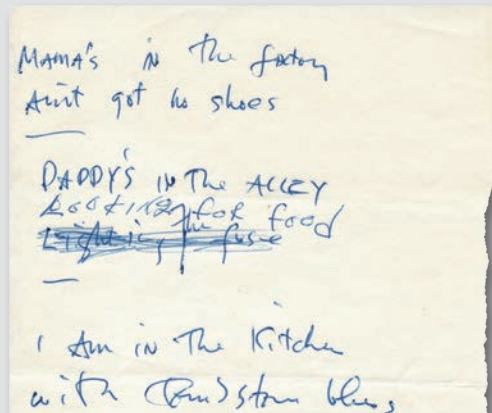 MAMA's iN the factory
Ain't got no shoes
DADDY'S IN The ALLEY
LOOKING for food
Lighting the fuse
I Am iN The Kitchen
with Tombstone blues